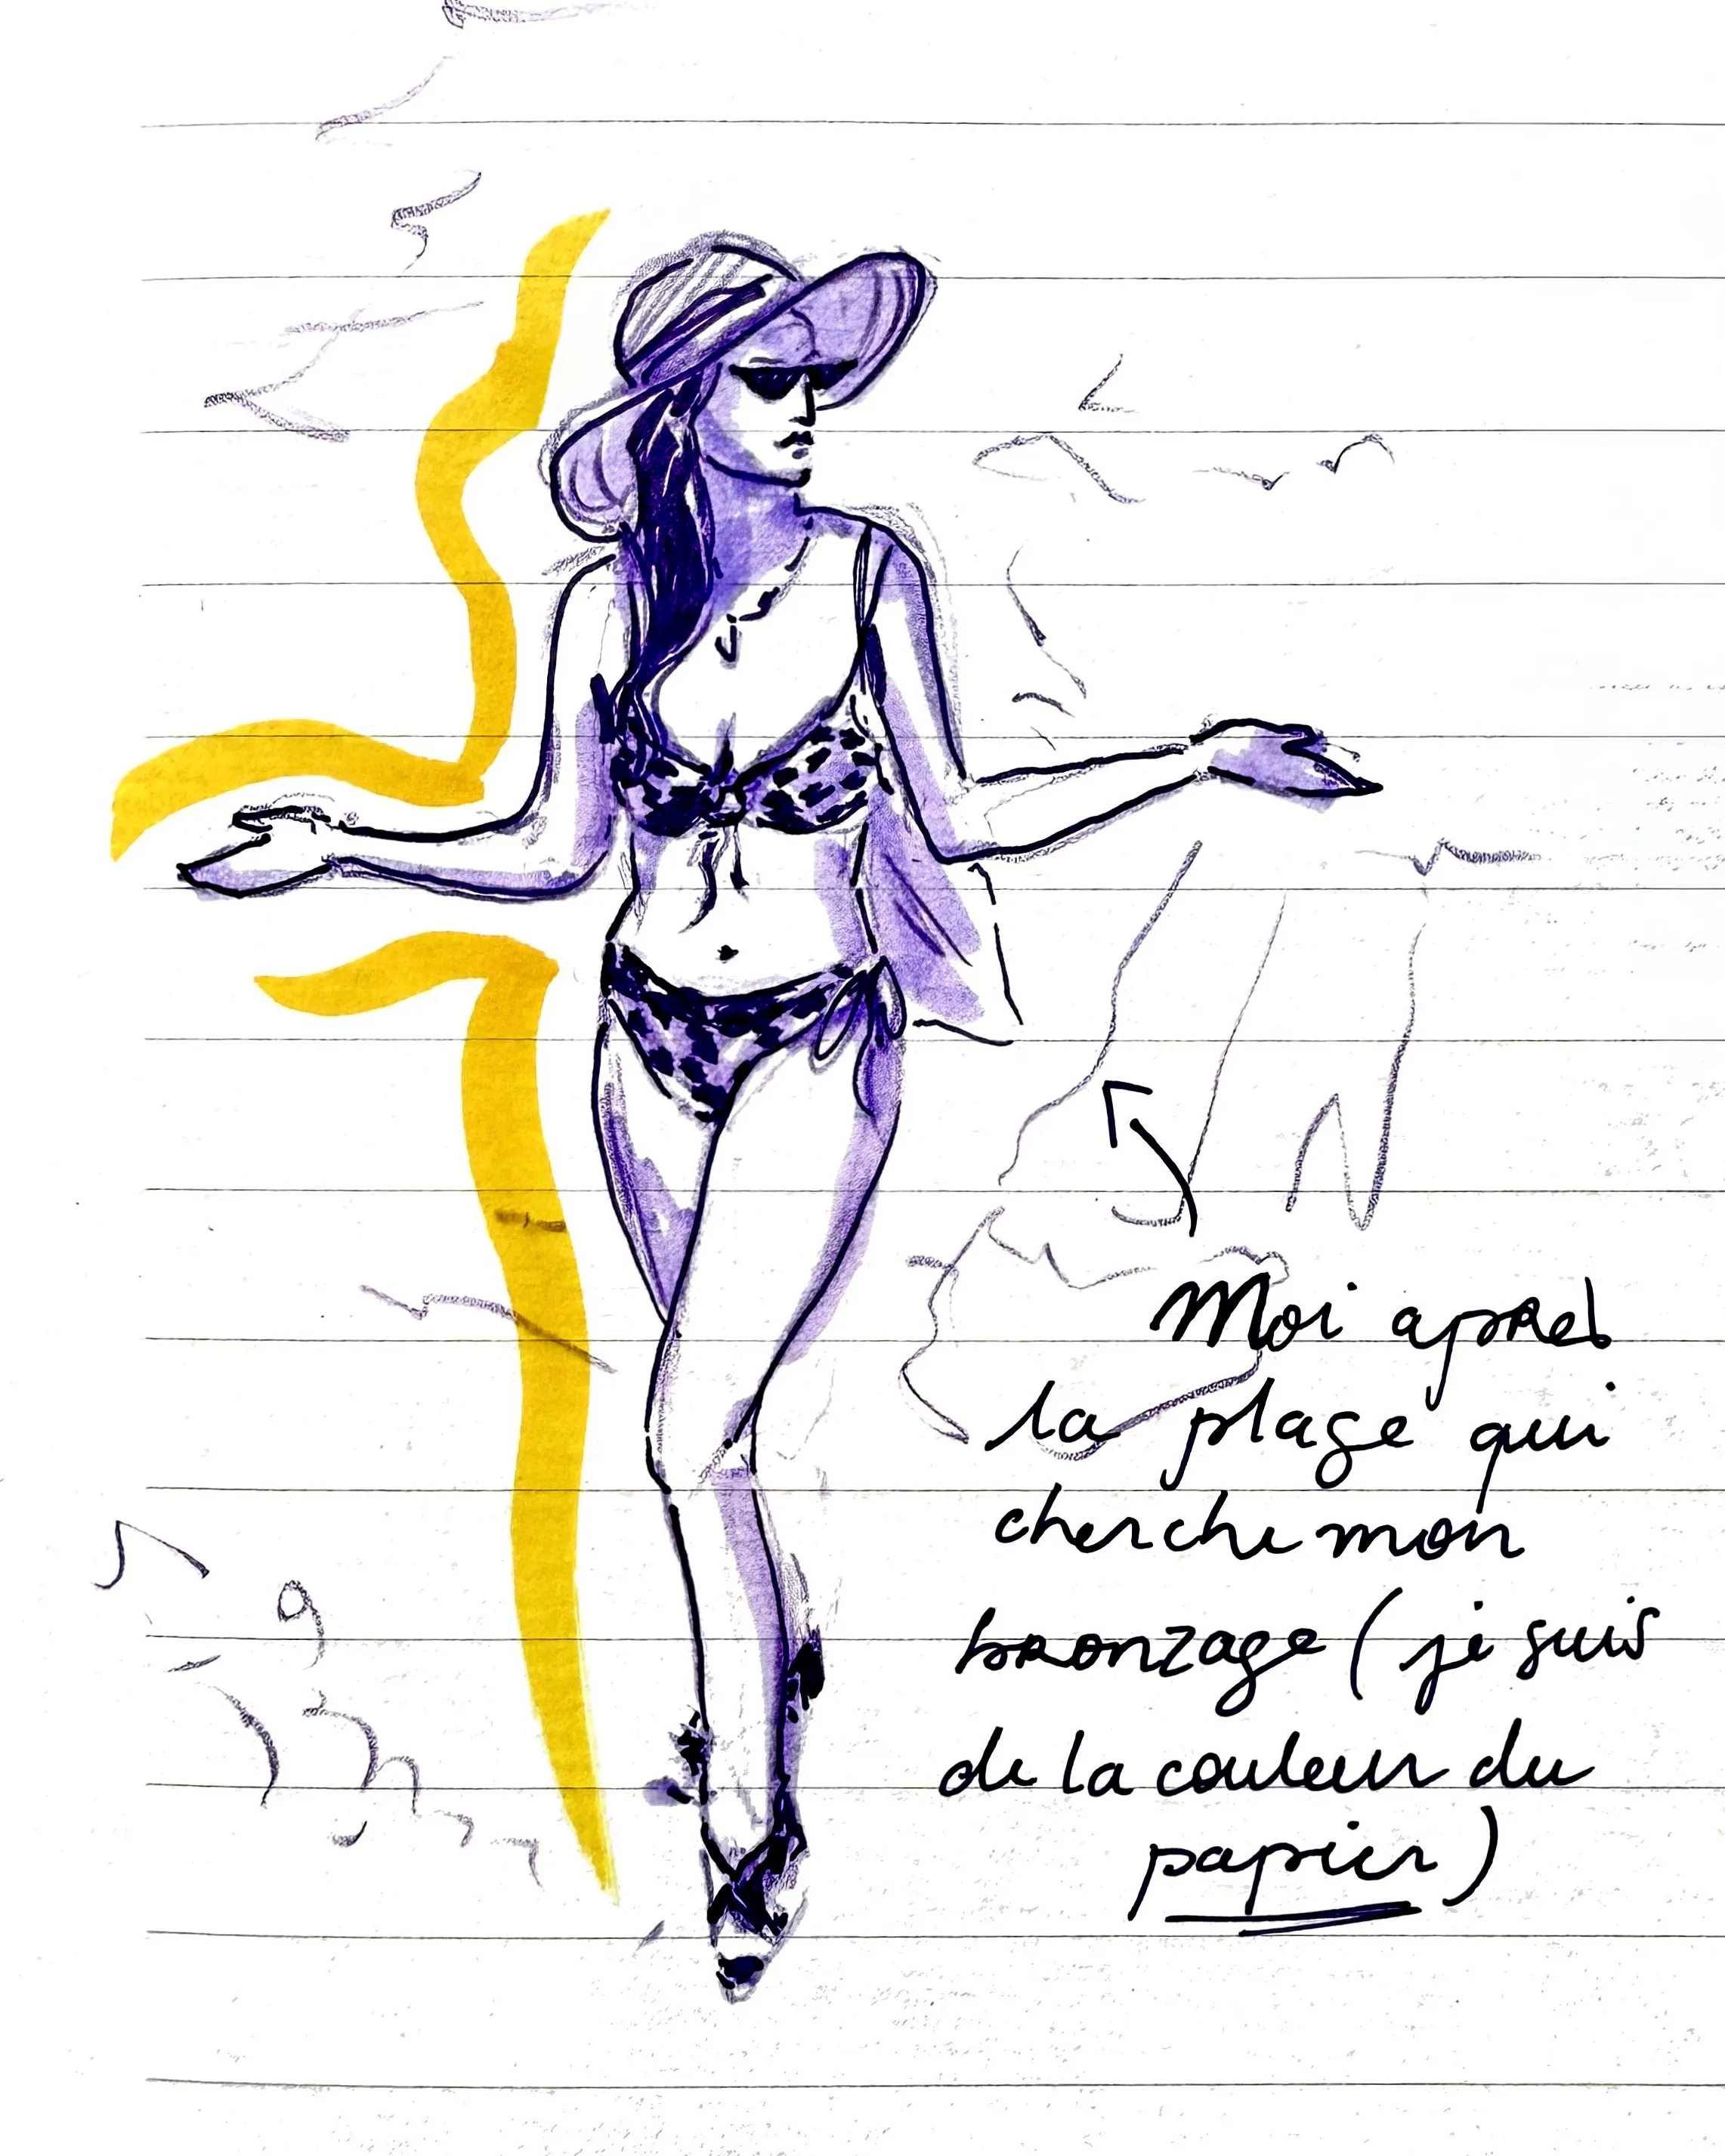 Moi après
la plage qui
cherche mon
bronzage (je suis
de la couleur du
papier)